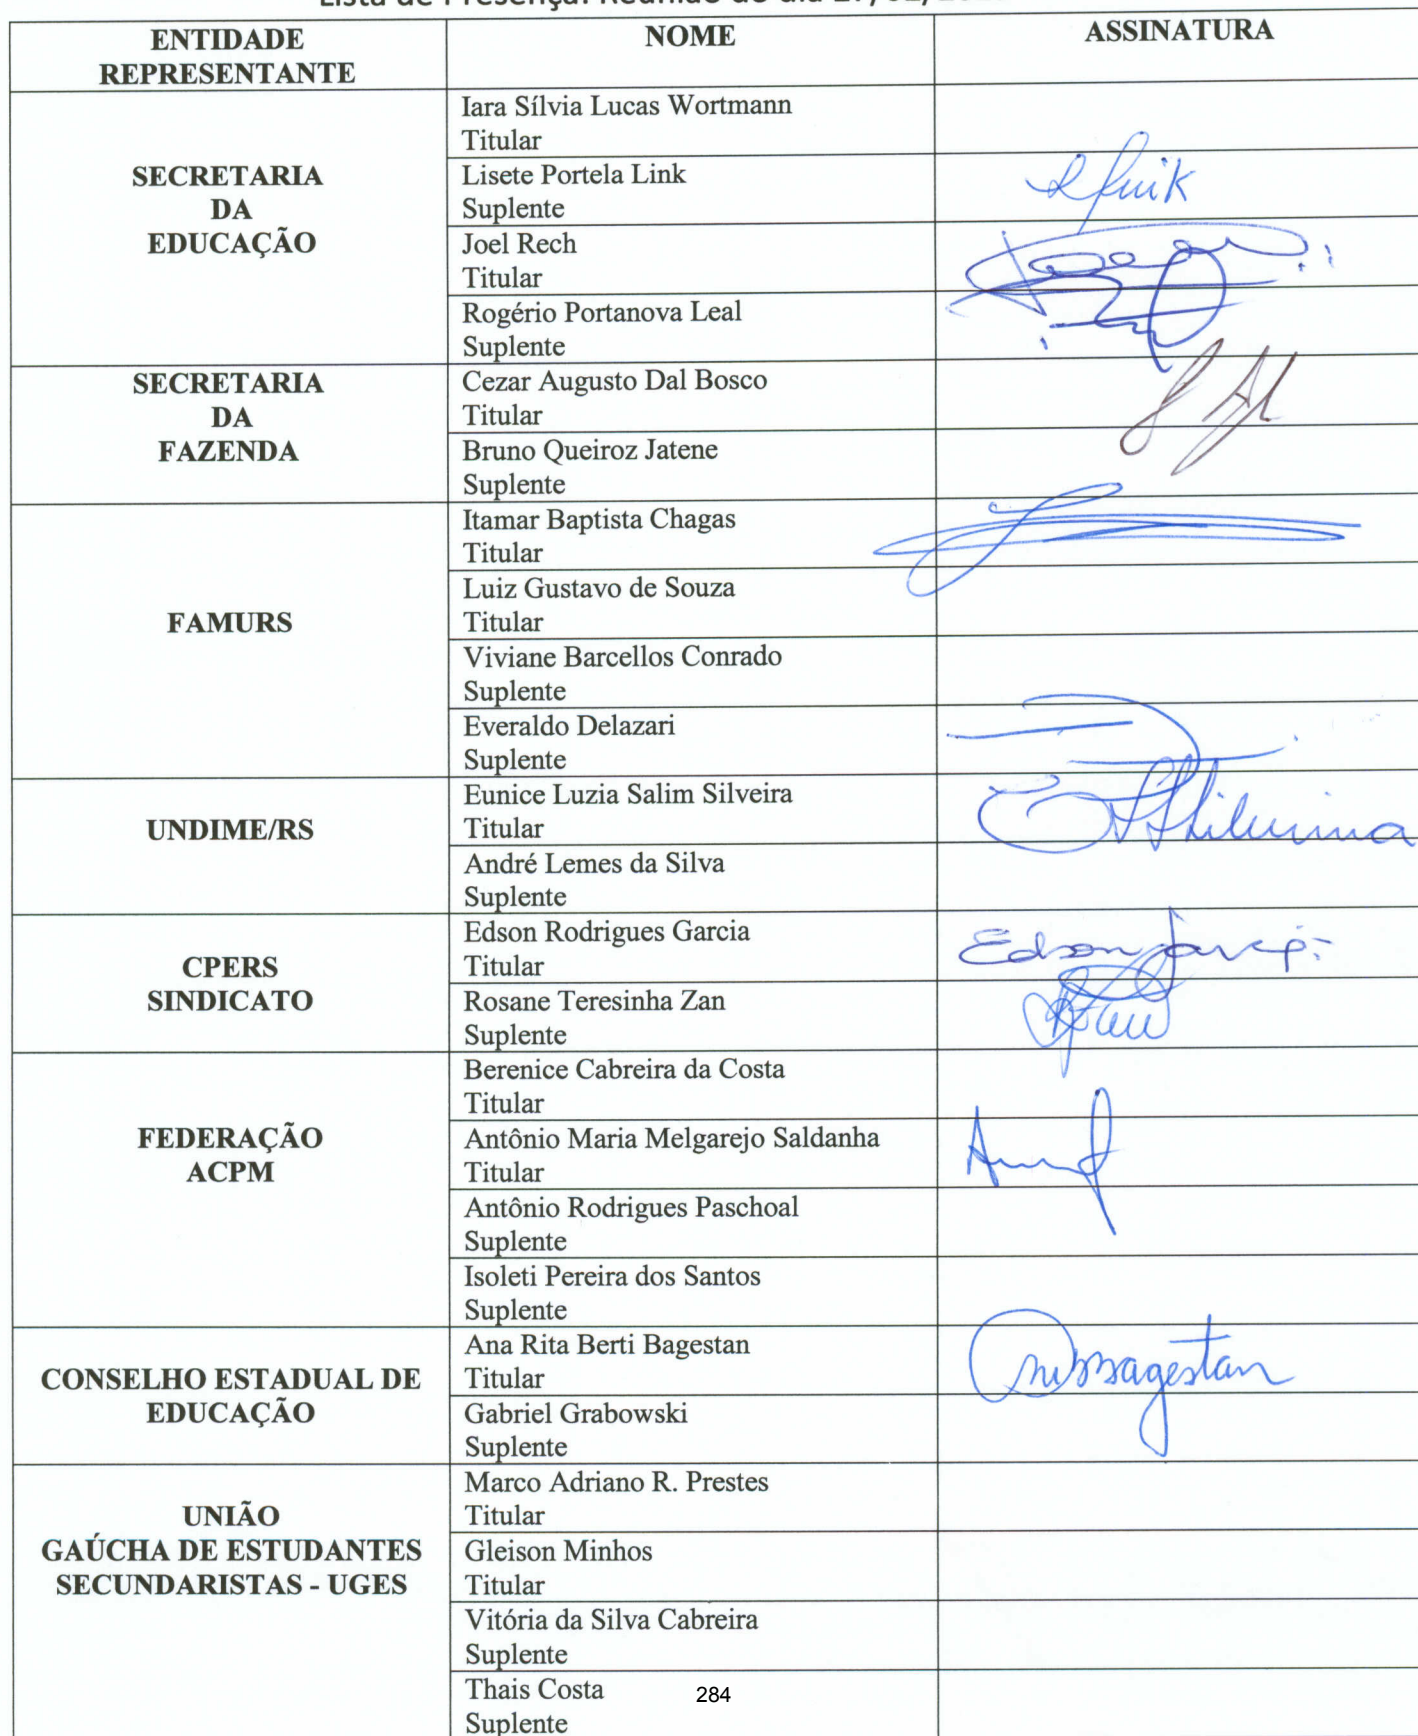 ENTIDADE
REPRESENTANTE
NOME
ASSINATURA
SECRETARIA
DA
EDUCAÇÃO
Iara Sílvia Lucas Wortmann
Titular
Lisete Portela Link
Suplente
Joel Rech
Titular
Rogério Portanova Leal
Suplente
SECRETARIA
DA
FAZENDA
Cezar Augusto Dal Bosco
Titular
Bruno Queiroz Jatene
Suplente
FAMURS
Itamar Baptista Chagas
Titular
Luiz Gustavo de Souza
Titular
Viviane Barcellos Conrado
Suplente
Everaldo Delazari
Suplente
UNDIME/RS
Eunice Luzia Salim Silveira
Titular
André Lemes da Silva
Suplente
CPERS
SINDICATO
Edson Rodrigues Garcia
Titular
Edson
Rosane Teresinha Zan
Suplente
FEDERAÇÃO
ACPM
Berenice Cabreira da Costa
Titular
Antônio Maria Melgarejo Saldanha
Titular
Antônio Rodrigues Paschoal
Suplente
Isoleti Pereira dos Santos
Suplente
CONSELHO ESTADUAL DE
EDUCAÇÃO
Ana Rita Berti Bagestan
Titular
Gabriel Grabowski
Suplente
UNIÃO
GAÚCHA DE ESTUDANTES
SECUNDARISTAS - UGES
Marco Adriano R. Prestes
Titular
Gleison Minhos
Titular
Vitória da Silva Cabreira
Suplente
Thais Costa
Suplente
284